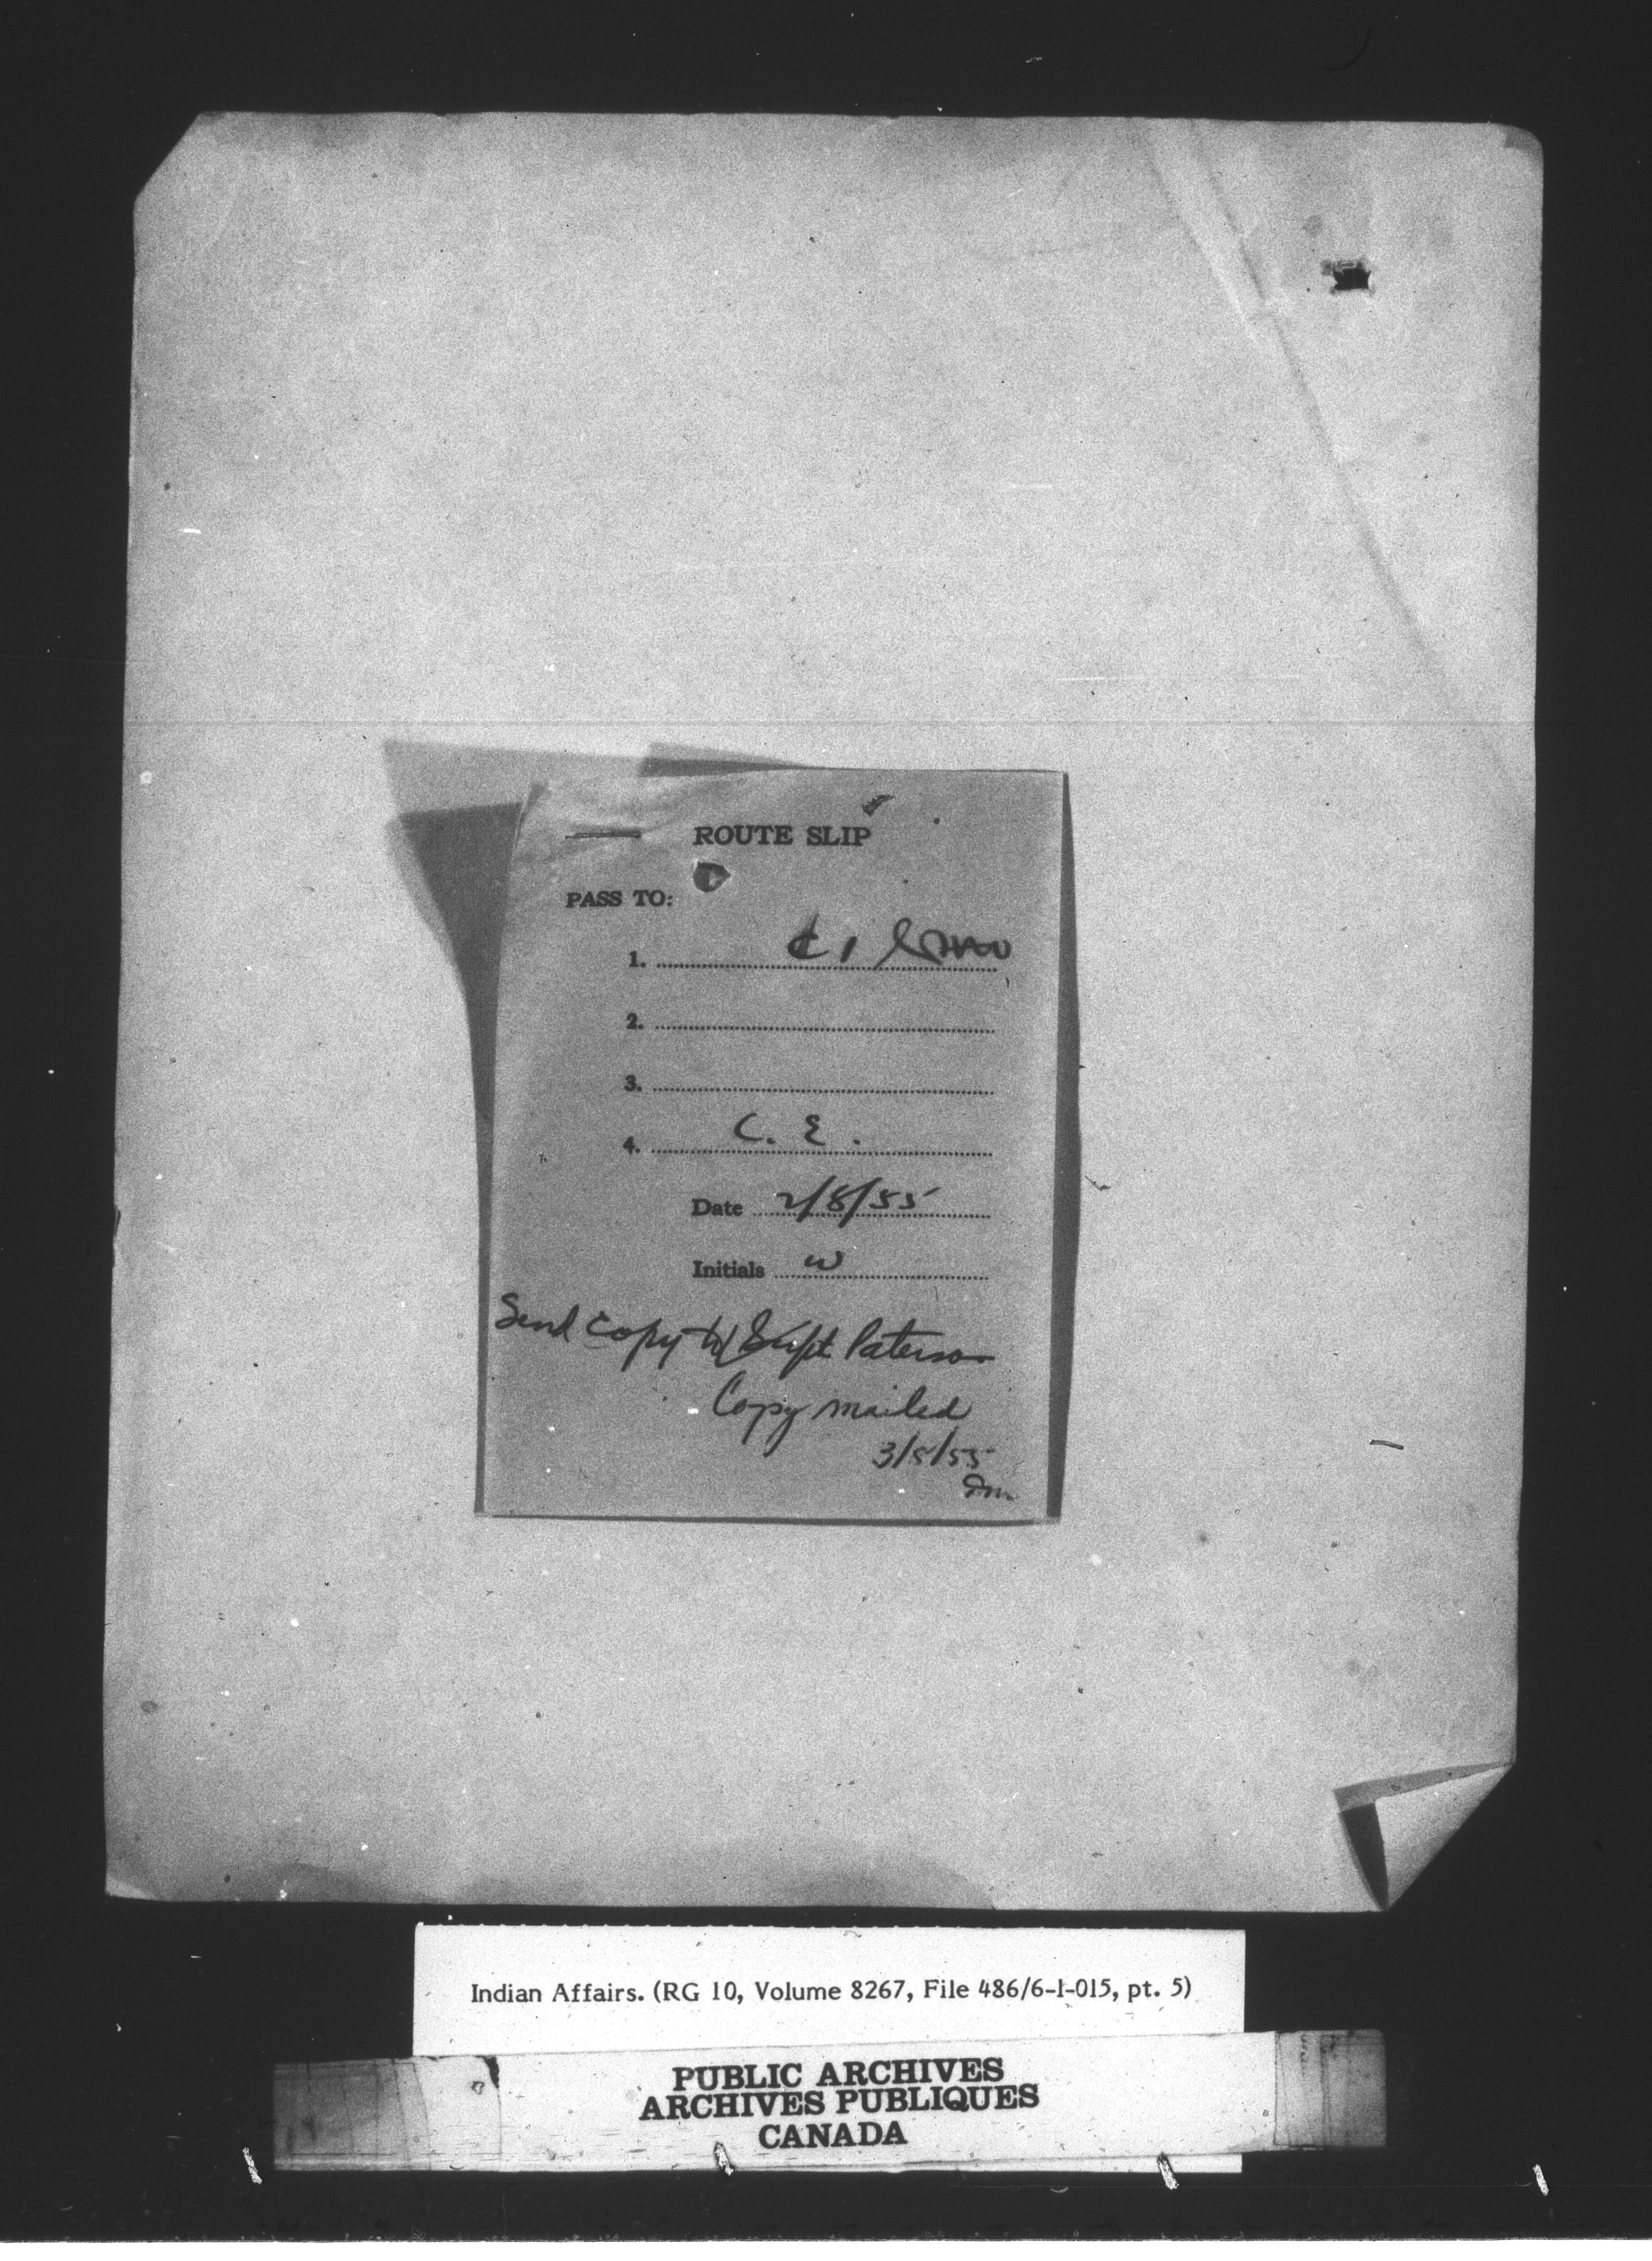 ROUTE SLIP
PASS TO:
1.
2.
3.
4. C. E.
Date 2/8/55
Initials W
Send copy to Supt Paterson
Copy mailed
3/8/55
Indian Affairs. (RG 10, Volume 8267, File 486/6-1-015, pt. 5)
PUBLIC ARCHIVES
ARCHIVES PUBLIQUES
CANADA